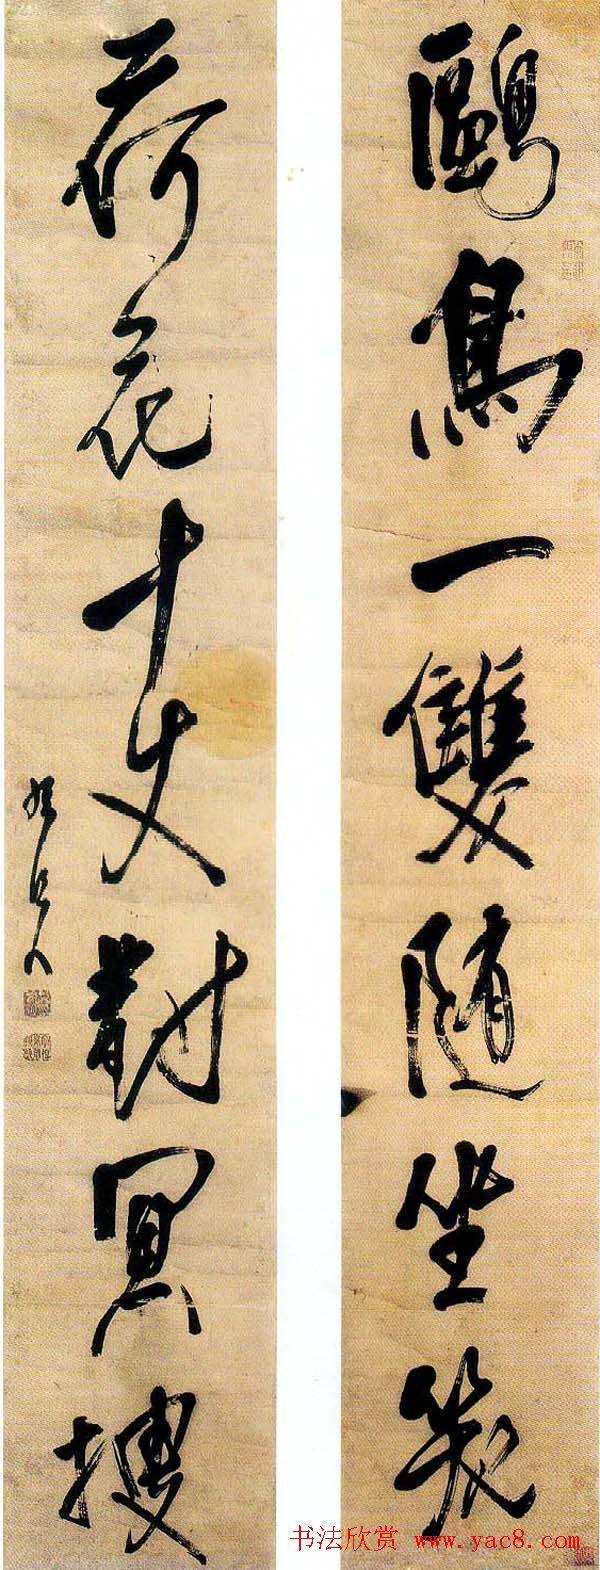 鷗鳥一雙隨坐笑
荷花十丈對冥搜
书法欣赏 www.yac8.com